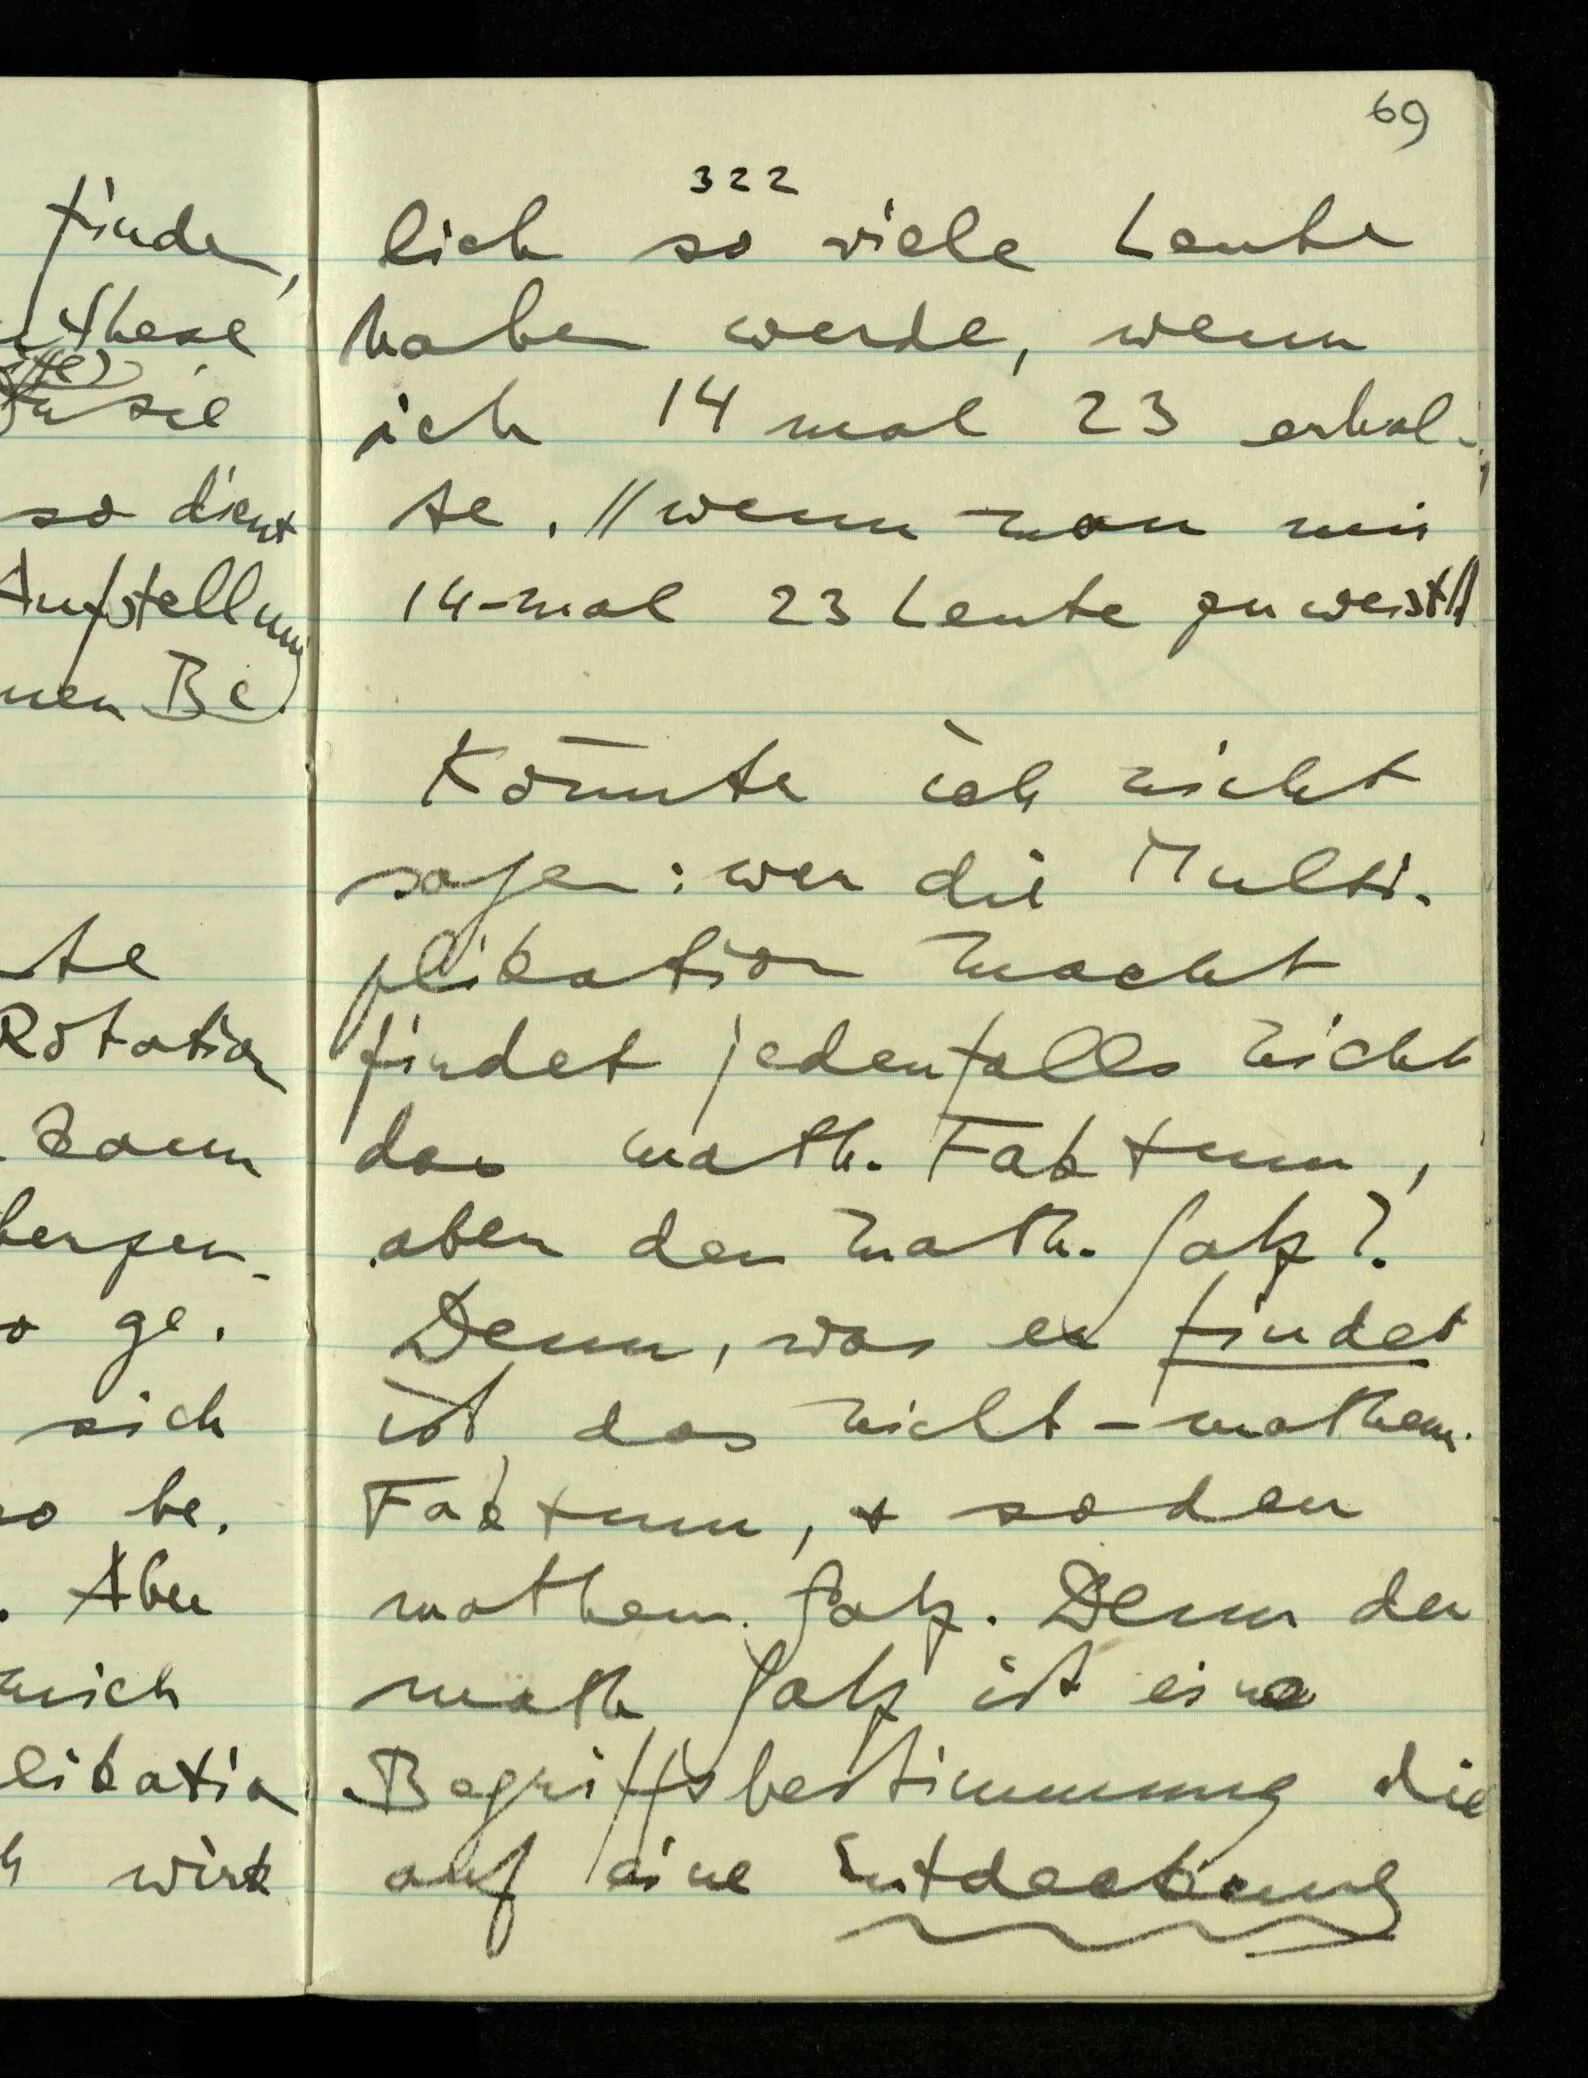 finde,
these
sie
so dient
Aufstellung
nen Be
te
Rotation
kann
berzeu-
ge.
sich
so be.
Aber
mich
likation
wirk
69
322
lich so viele Leute
haben werde, wenn
ich 14 mal 23 erhal-
te. // wenn man mir
14-mal 23 Leute zuweist //
Könnte ich nicht
sagen: wer die Multi-
plikation macht
findet jedenfalls nicht
das math. Faktum,
aber den math. Satz?
Denn, was er findet
ist das nicht-mathem.
Faktum, + so den
mathem. Satz. Denn der
math Satz ist eine
Begriffsbestimmung die
auf eine Entdeckung